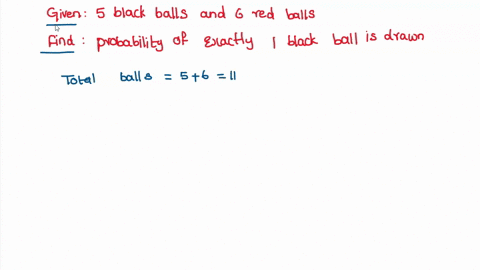 Given: 5 black balls and 6 red balls
Find: probability of exactly 1 black ball is drawn
Total balls = 5+6 = 11